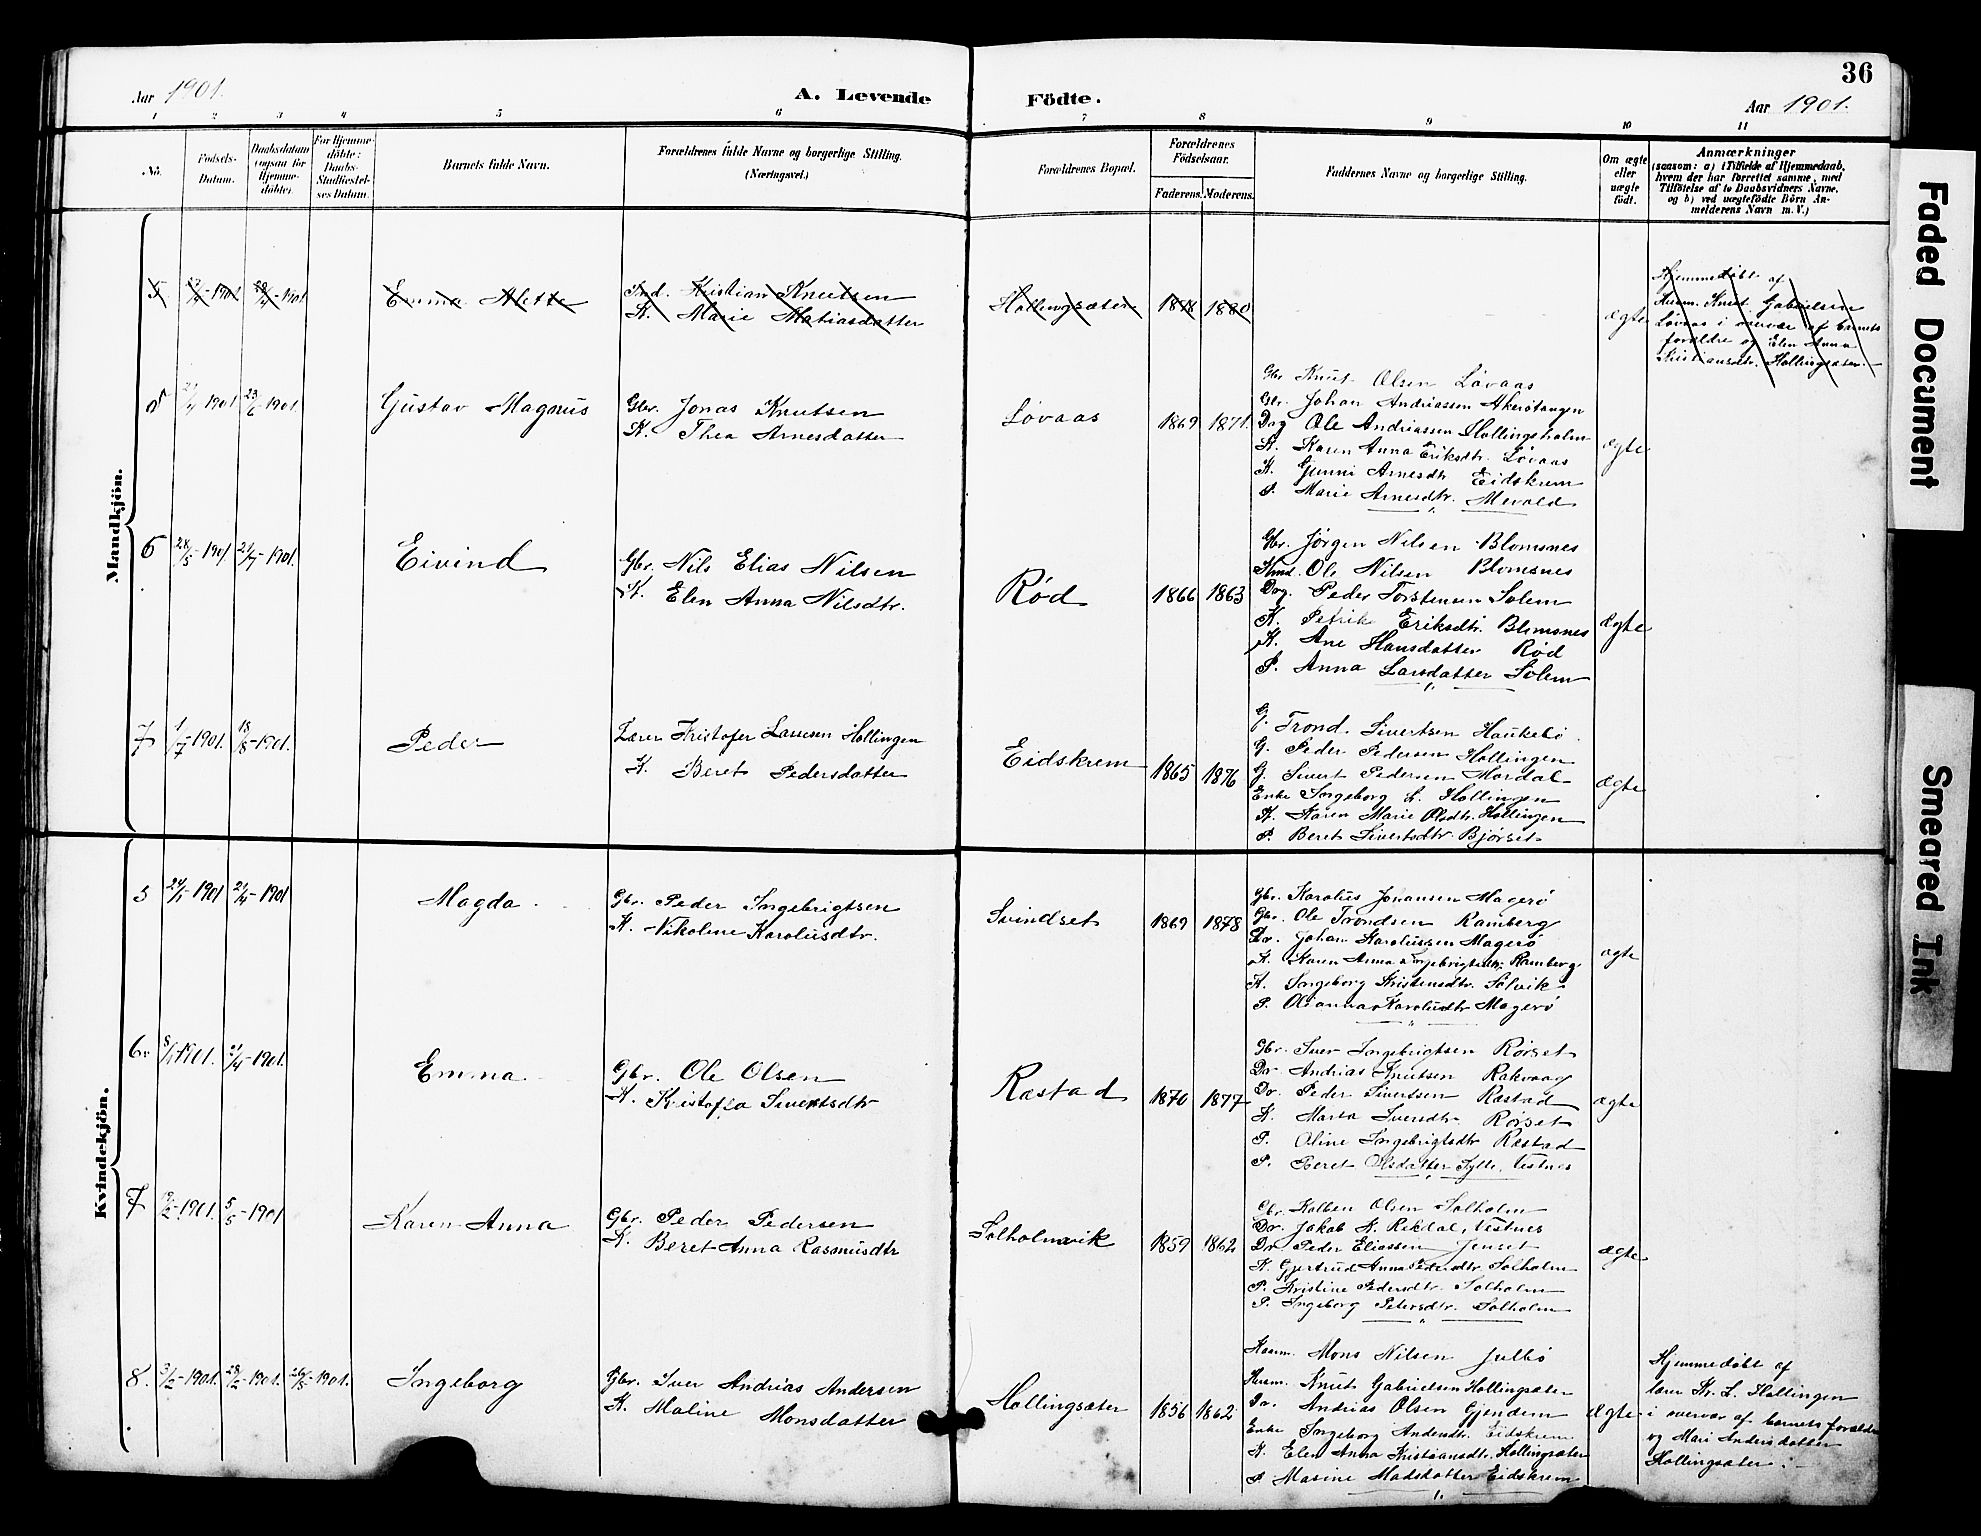 36
Aar 1901.
A. Levende
Födte.
Aar 1901.
1 2 3 4 5 6 7 8 9 10 11
No.
Födsels-
Datum.
Daabsdatum
(ogsaa for
Hjemme-
döbte).
For Hjemme-
döbte:
Daabs-
Stadfæstel-
ses Datum.
Barnets fulde Navn.
Forældrenes fulde Navne og borgerlige Stilling.
(Næringsvei.)
Forældrenes Bopæl.
Forældrenes
Födselsaar.
Faderens. Moderens.
Faddernes Navne og borgerlige Stilling.
Om ægte
eller
uægte
födt.
Anmærkninger
(saasom: a) i Tilfælde af Hjemmedaab,
hvem der har forrettet samme, med
Tilföielse af to Daabsvidners Navne,
og b) ved uægtefödte Börn An-
melderens Navn m. V.)
Mandkjön.
5 1901 1901
Emma Alette
Ind. Kristian Knutsen
K. Marie Matiasdatter
Hollingsæter
1878 1880
ægte
Hjemmedøbt af
Husm. Knut Gabrielsen
Løvaas i overvær af barnets
forældre og Elen Anna
Kristiansdtr. Hollingsæter.
5 1901 23/6 1901.
Gustav Magnus
Gbr. Jonas Knutsen
K. Thea Arnesdatter
Løvaas
1869 1871.
Gbr Knut Olsen Løvaas
Gbr. Johan Andriassen Akerøtangen
Drg Ole Andriassen Hollingsholm
K. Karen Anna Eriksdtr. Løvaas
K. Gunni Arnesdtr Eidskrem
P. Marie Arnesdtr.
ægte
6 28/5-1901 21/7-1901.
Eivind
Gbr. Nils Elias Nilsen
K. Elen Anna Nilsdtr.
Rød
1866 1863
Gbr. Jørgen Nilsen Blomsnes
Ole Nilsen Blomsnes
Drg. Peder Torstensen Solem
K. Petrik Eriksdtr. Blomsnes
K. Ane Hansdatter Rød
P. Anna Larsdatter Solem
Ægte
7 1/7-1901. 18/8-1901.
Peder
Lærer Kristofer Larsen Hollingen
K. Beret Pedersdatter
Eidskrem
1865 1876
G. Trond Sivertsen Haukebø
G. Peder Pedersen Hollingen
G. Sivert Pedersen Mordal
Enke Ingeborg L. Hollingen
K. Karen Marie Olsdtr. Hollingen
P. Beret Sivertsdtr. Bjørset
ægte
Kvindekjön.
5 24/1 1901 21/4-1901
Magda
Gbr. Peder Ingebrigtsen
K. Nikoline Karolusdtr.
Svindset
1869 1878
Gbr. Karolius Johansen Magerø
Gbr. Ole Trondsen Ramberg
Dr. Johan Karolussen Magerø
K. Karen Anna Ingebrigtsdtr. Ramberg
K. Ingeborg Kristensdtr. Solvik
P. Olianna Karolusdtr Magerø
ægte
6. 1901. 21/4-1901.
Emma
Gbr. Ole Olsen
K. Kristofa Sivertsdtr
Ræstad
1870 1877
Gbr. Iver Ingebrigtsen Rørset
Dr. Andrias Knutsen Rakvaag
Dr. Peder Sivertsen Ræstad
K. Marta Svendtr Rørset
P. Oline Ingebrigtsdtr Ræstad
P. Beret Olsdatter Sylte, Vestnes
ægte
7 1901. 5/5-1901
Karen Anna
Gbr. Peder Pedersen
K. Beret Anna Rasmusdtr
Solholmvik
1859 1862
Gbr. Kolben Olsen Solholm
Dr. Jakob K. Rekdal, Vestnes
Dr Peder Eliassen Jenset
K. Gjertrud Anna Pedersdtr. Solholm
P. Kristine Pedersdtr. Solholm
P. Ingeborg Petersdtr. Solholm
ægte
8. 3/2-1901. 28/2-1901. 26/5-1901.
Ingeborg
Gbr. Iver Andrias Andersen
K. Maline Monsdatter
Hollingsæter
1856 1862
Husm. Mons Nilsen Julbø
Husm. Knut Gabrielsen Hollingsæter
Dr. Andrias Olsen Gjendem
Enke Ingeborg Andersdtr. Eidskrem
K. Elen Anna Kristiansdtr. Hollingsæter
P Masine Madsdatter Eidskrem
Ægte
Hjemmedøbt af
lærer Kr. L. Hollingen
i overvær af barnets forældre
og Mari Andersdatter
Hollingsæter.
Faded Document
Smeared Ink